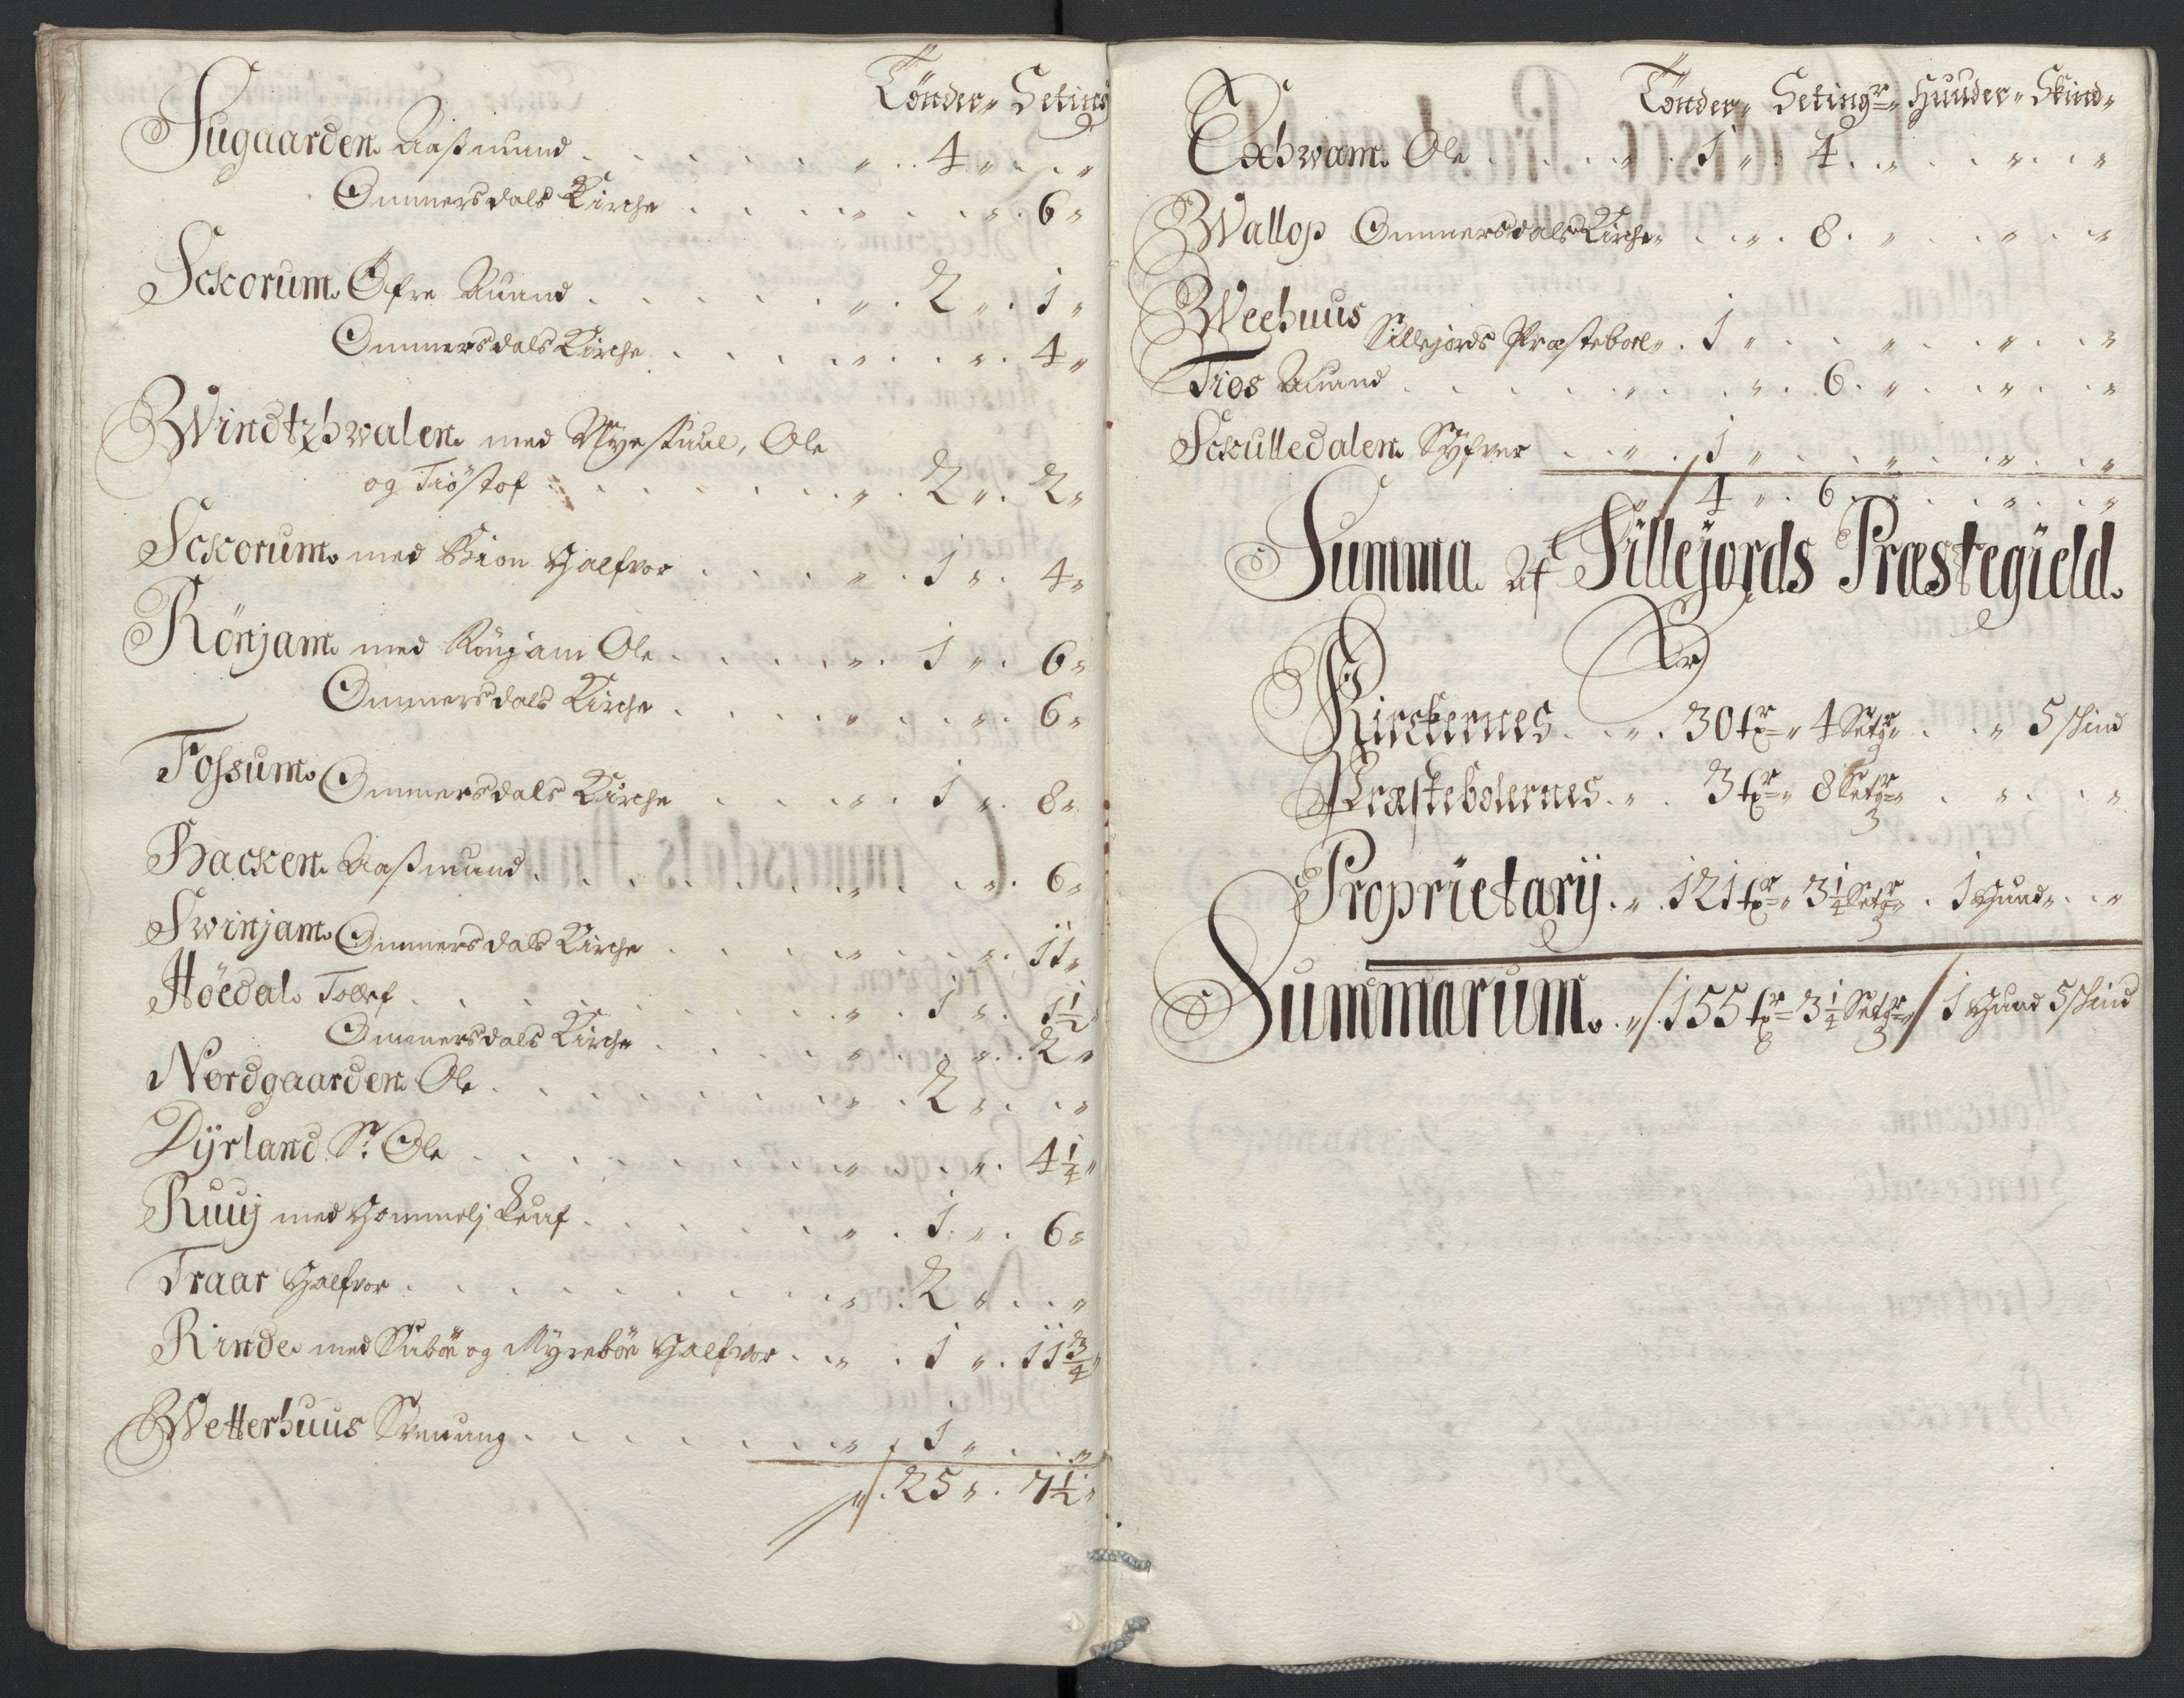 Tönder„ Seting
Sugaarden Aaßmund . . . „ . 4 „ . „
Ommersdals Kirche . . . „ . „ . 6„
Sckorum Öfre Auand . . . „ . 2 „ . 1„
Ommersdals Kirche . . . „ . „ . 4„
Windtzhwalen med Myrestuul, Ole
og Tiöstof . . . „ . 2 „ . 2„
Sckorum med Bion Halfvor . . . „ . 1 „ . 4„
Rönjam med Rönjam Ole . . . „ . 1 „ . 6„
Ommersdals Kirche . . . „ . „ . 6„
Fossum Ommersdals Kirche . . . „ . 1 „ . 8„
Backen Aaßmund . . . „ . „ . 6„
Swinjam Ommersdals Kirche . . . „ . „ . 11„
Höedal Tollef . . . „ . 1 „ . 1½
Ommersdals Kirche . . . „ . „ . 2„
Nordgaarden Ole . . . „ . 2 „ . „
Dÿrland Sr. Ole . . . „ . „ . 4¼„
Ruuj med . . . „ . 1 „ . 6„
Traar Halfvor . . . „ . 2 „ . „
Rinde med Suböe og Myreböe Halfvor . „ . 1 „ . 11¾„
Wetterhuus . . . „ . 1 „ . „
„ / . 25 „ . 7½„
Tönder„ Setingr„ Huuder„ Skind„
Exhwam Ole . . . „ . 1 „ . 4 . „ . „ . „
Wallop Ommersdals Kirche„ . „ . 8 . „ . „ . „
Weehuus Sillejords Præstebol„ . 1 „ . „ . „ . „
Tios Auand . . . „ . „ . 6 . „ . „ . „
Sckulledalen Syfver . „ . 1 „ . „ . „ . „
„ / 4 „ . 6 . „ . „ . „
Summa Af Sillejords Præstegield.
Er
Kirckernes . . „ . 30 tr „ 4 Setr„ . . „ 5 skind
Præstebolernes . „ . 3 tr „ 8 Setr„ . „ . „
Proprietarij . „ . 121 tr „ 3¼ Setr„ . 1 Huud„ . „
Summarum . „ / . 155 tr 3¼ Setr„ / 1 Huud 5 skind